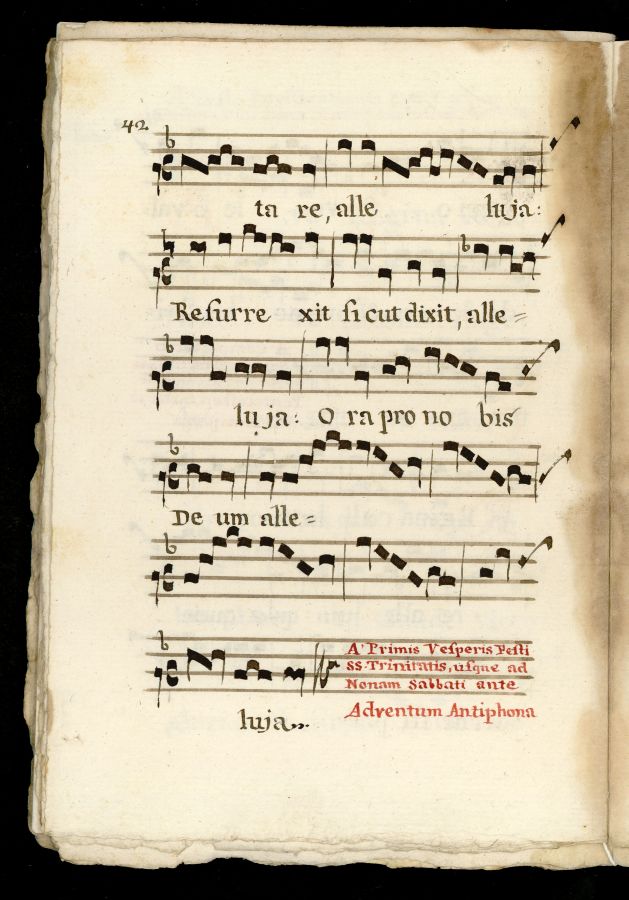 42.
ta re, alle luja:
Resurre xit sicut dixit, alle=
luja: O ra pro no bis
De um alle=
A' Primis Vesperis Festi
SS. Trinitatis, usque ad
Nonam Sabbati ante
Adventum Antiphona
luja..